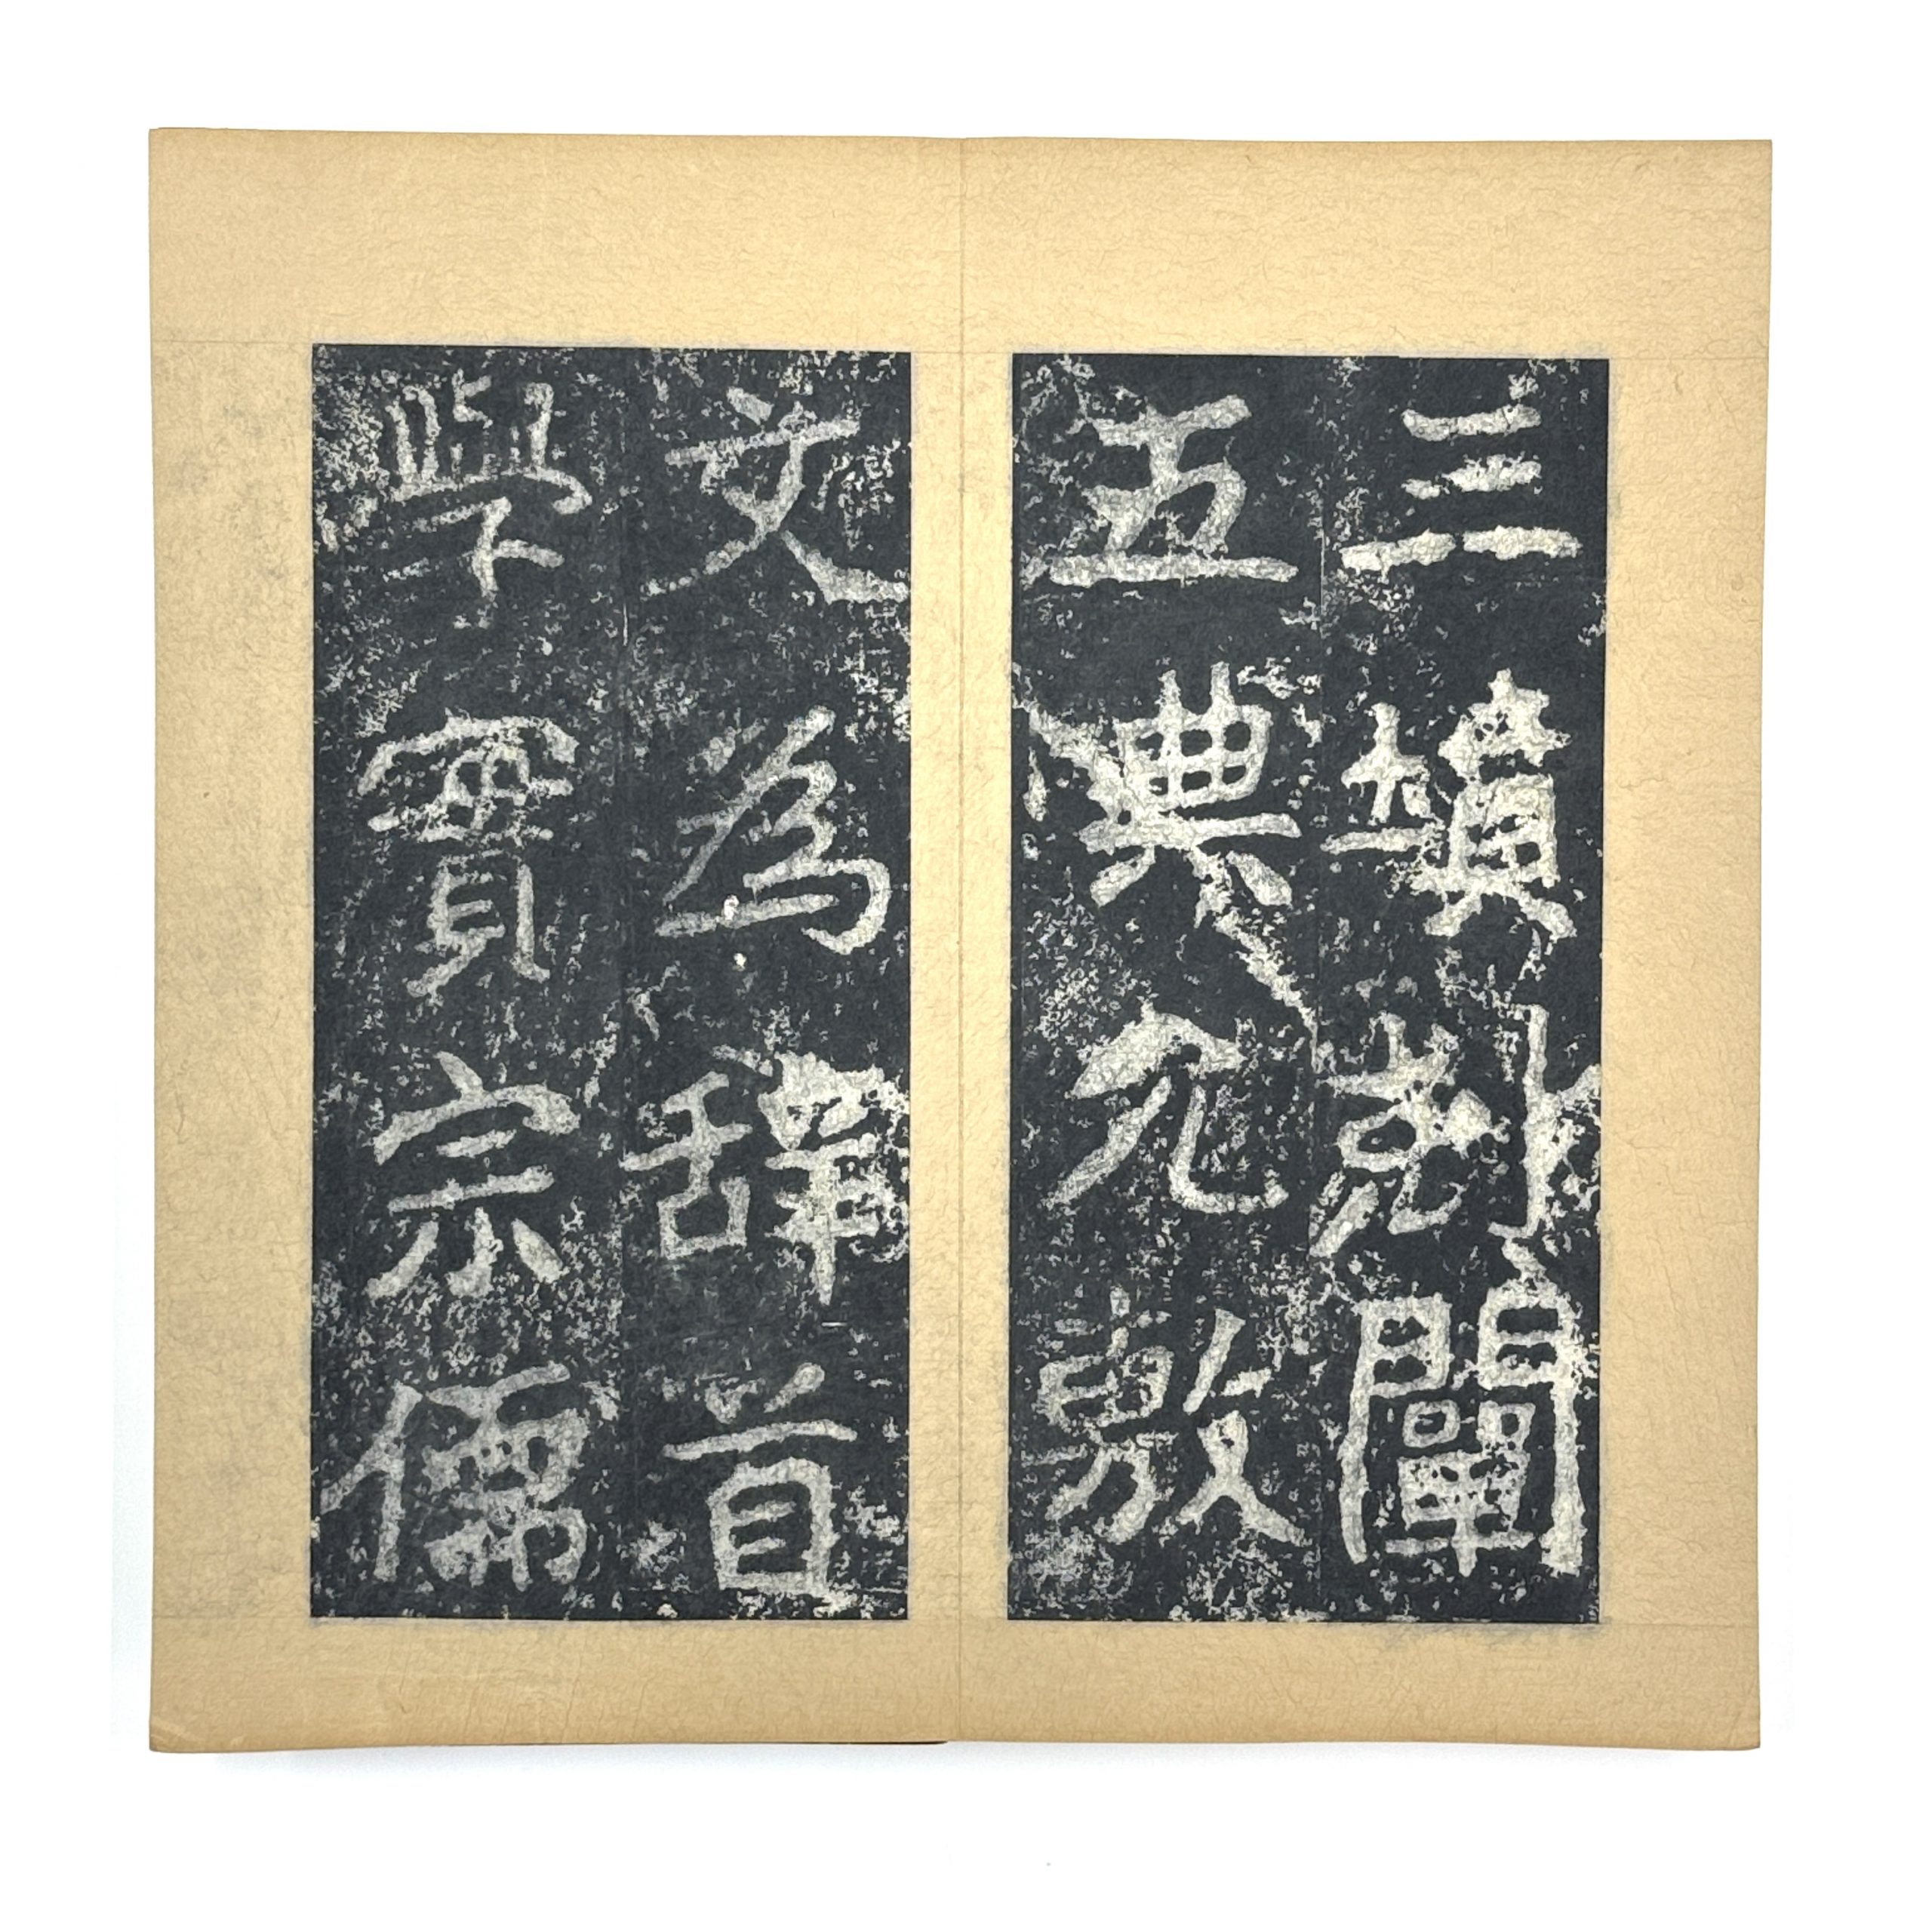 三墳剋闡
五典允敷
文為辭首
學實宗儒